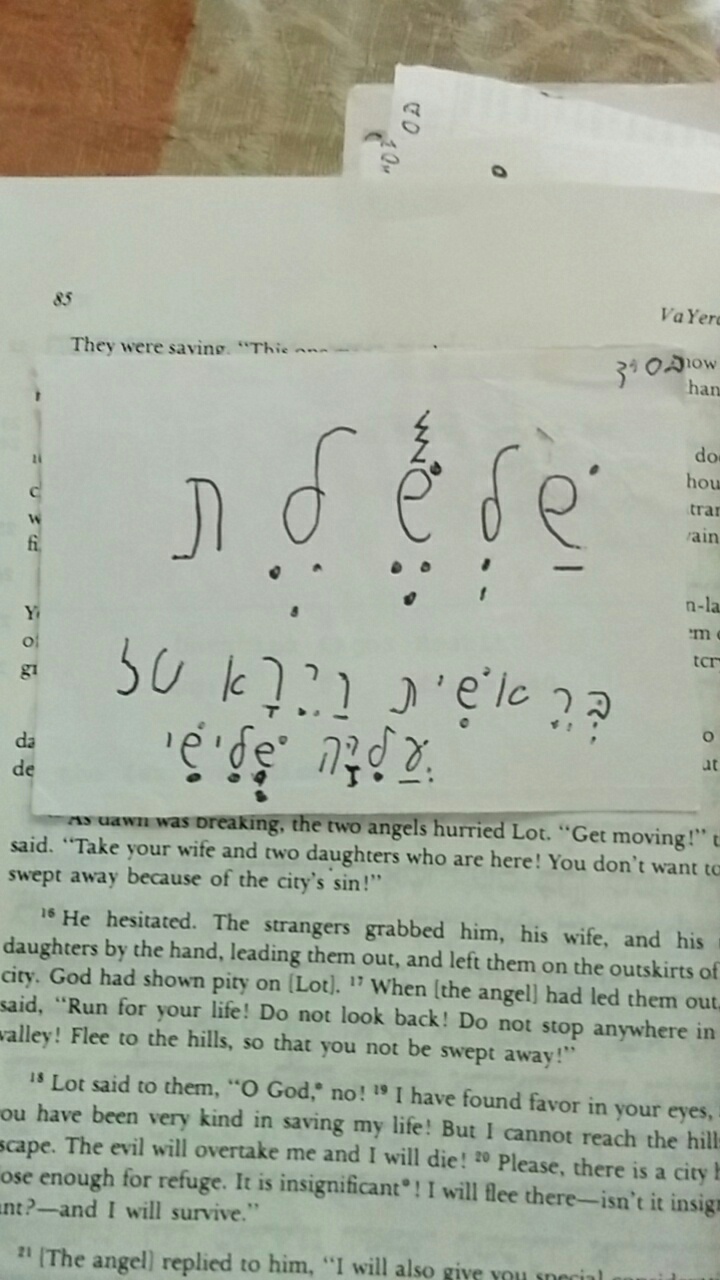 85
VaYer
They were saying, "This one
בס״ד
שַׁלְשֶׁ֓לֶת
בְּרֵאשִׁית וַיֵּרָא של
עֲלִיָּה שְׁלִישִׁי
As dawn was breaking, the two angels hurried Lot. "Get moving!"
said. "Take your wife and two daughters who are here! You don't want to
swept away because of the city's sin!"
16 He hesitated. The strangers grabbed him, his wife, and his
daughters by the hand, leading them out, and left them on the outskirts of
city. God had shown pity on [Lot]. 17 When [the angel] had led them out,
said, "Run for your life! Do not look back! Do not stop anywhere in
valley! Flee to the hills, so that you not be swept away!"
18 Lot said to them, "O God,* no! 19 I have found favor in your eyes,
ou have been very kind in saving my life! But I cannot reach the hill
scape. The evil will overtake me and I will die! 20 Please, there is a city
ose enough for refuge. It is insignificant*! I will flee there—isn't it insig
nt?—and I will survive."
21 [The angel] replied to him, "I will also give you special